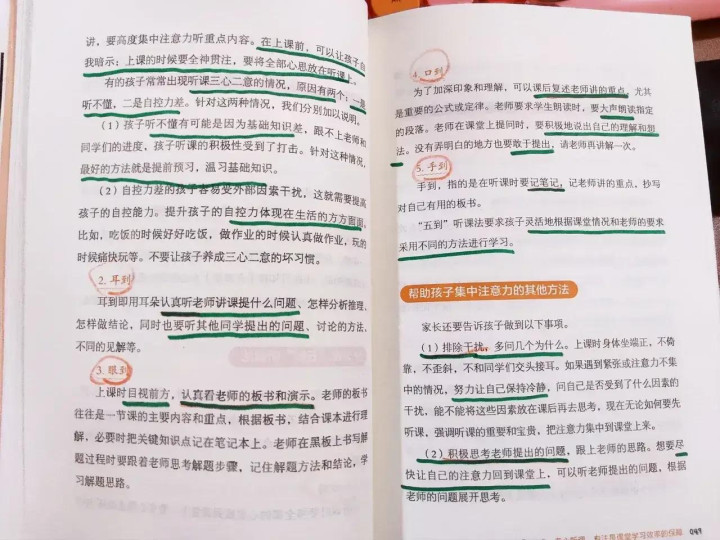 讲，要高度集中注意力听重点内容。在上课前，可以让孩子自
我暗示：上课的时候要全神贯注，要将全部心思放在听课上。
有的孩子常常出现听课三心二意的情况，原因有两个：一是
听不懂，二是自控力差。针对这两种情况，我们分别加以说明。
（1）孩子听不懂有可能是因为基础知识差，跟不上老师和
同学们的进度，孩子听课的积极性受到了打击。针对这种情况，
最好的方法就是提前预习，温习基础知识。
（2）自控力差的孩子容易受外部因素干扰，这就需要提高
孩子的自控能力。提升孩子的自控力体现在生活的方方面面，
比如，吃饭的时候好好吃饭，做作业的时候认真做作业，玩的
时候痛快玩等。不要让孩子养成三心二意的坏习惯。
2. 耳到
耳到即用耳朵认真听老师讲课提什么问题、怎样分析推理、
怎样做结论，同时也要听其他同学提出的问题、讨论的方法、
不同的见解等。
3. 眼到
上课时目视前方，认真看老师的板书和演示。老师的板书
往往是一节课的主要内容和重点，根据板书，结合课本进行理
解，必要时把关键知识点记在笔记本上。老师在黑板上书写解
题过程时要跟着老师思考解题步骤，记住解题方法和结论，学
习解题思路。
4. 口到
为了加深印象和理解，可以课后复述老师讲的重点，尤其
是重要的公式或定律。老师要求学生朗读时，要大声朗读指定
的段落。老师在课堂上提问时，要积极地说出自己的理解和想
法。没有弄明白的地方也要敢于提出，请老师再讲解一次。
5. 手到
手到，指的是在听课时要记笔记，记老师讲的重点，抄写
对自己有用的板书。
“五到”听课法要求孩子灵活地根据课堂情况和老师的要求
采用不同的方法进行学习。
帮助孩子集中注意力的其他方法
家长还要告诉孩子做到以下事项。
（1）排除干扰，多问几个为什么。上课时身体坐端正，不倚
靠，不歪斜，不和同学们交头接耳。如果遇到紧张或注意力不集
中的情况，努力让自己保持冷静，问自己是否受到了什么因素的
干扰，能不能将这些因素放在课后再去思考，现在无论如何要先
听课，强调听课的重要和宝贵，把注意力集中到课堂上来。
（2）积极思考老师提出的问题，跟上老师的思路。想要尽
快让自己的注意力回到课堂上，可以听老师提出的问题，根据
老师的问题展开思考。
专注是课堂学习效率的保障